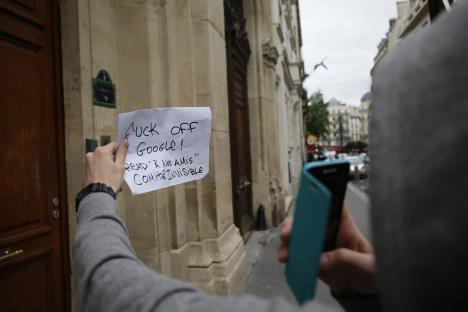 FUCK OFF
GOOGLE!
READ "À NOS AMIS"
COMITÉ INVISIBLE